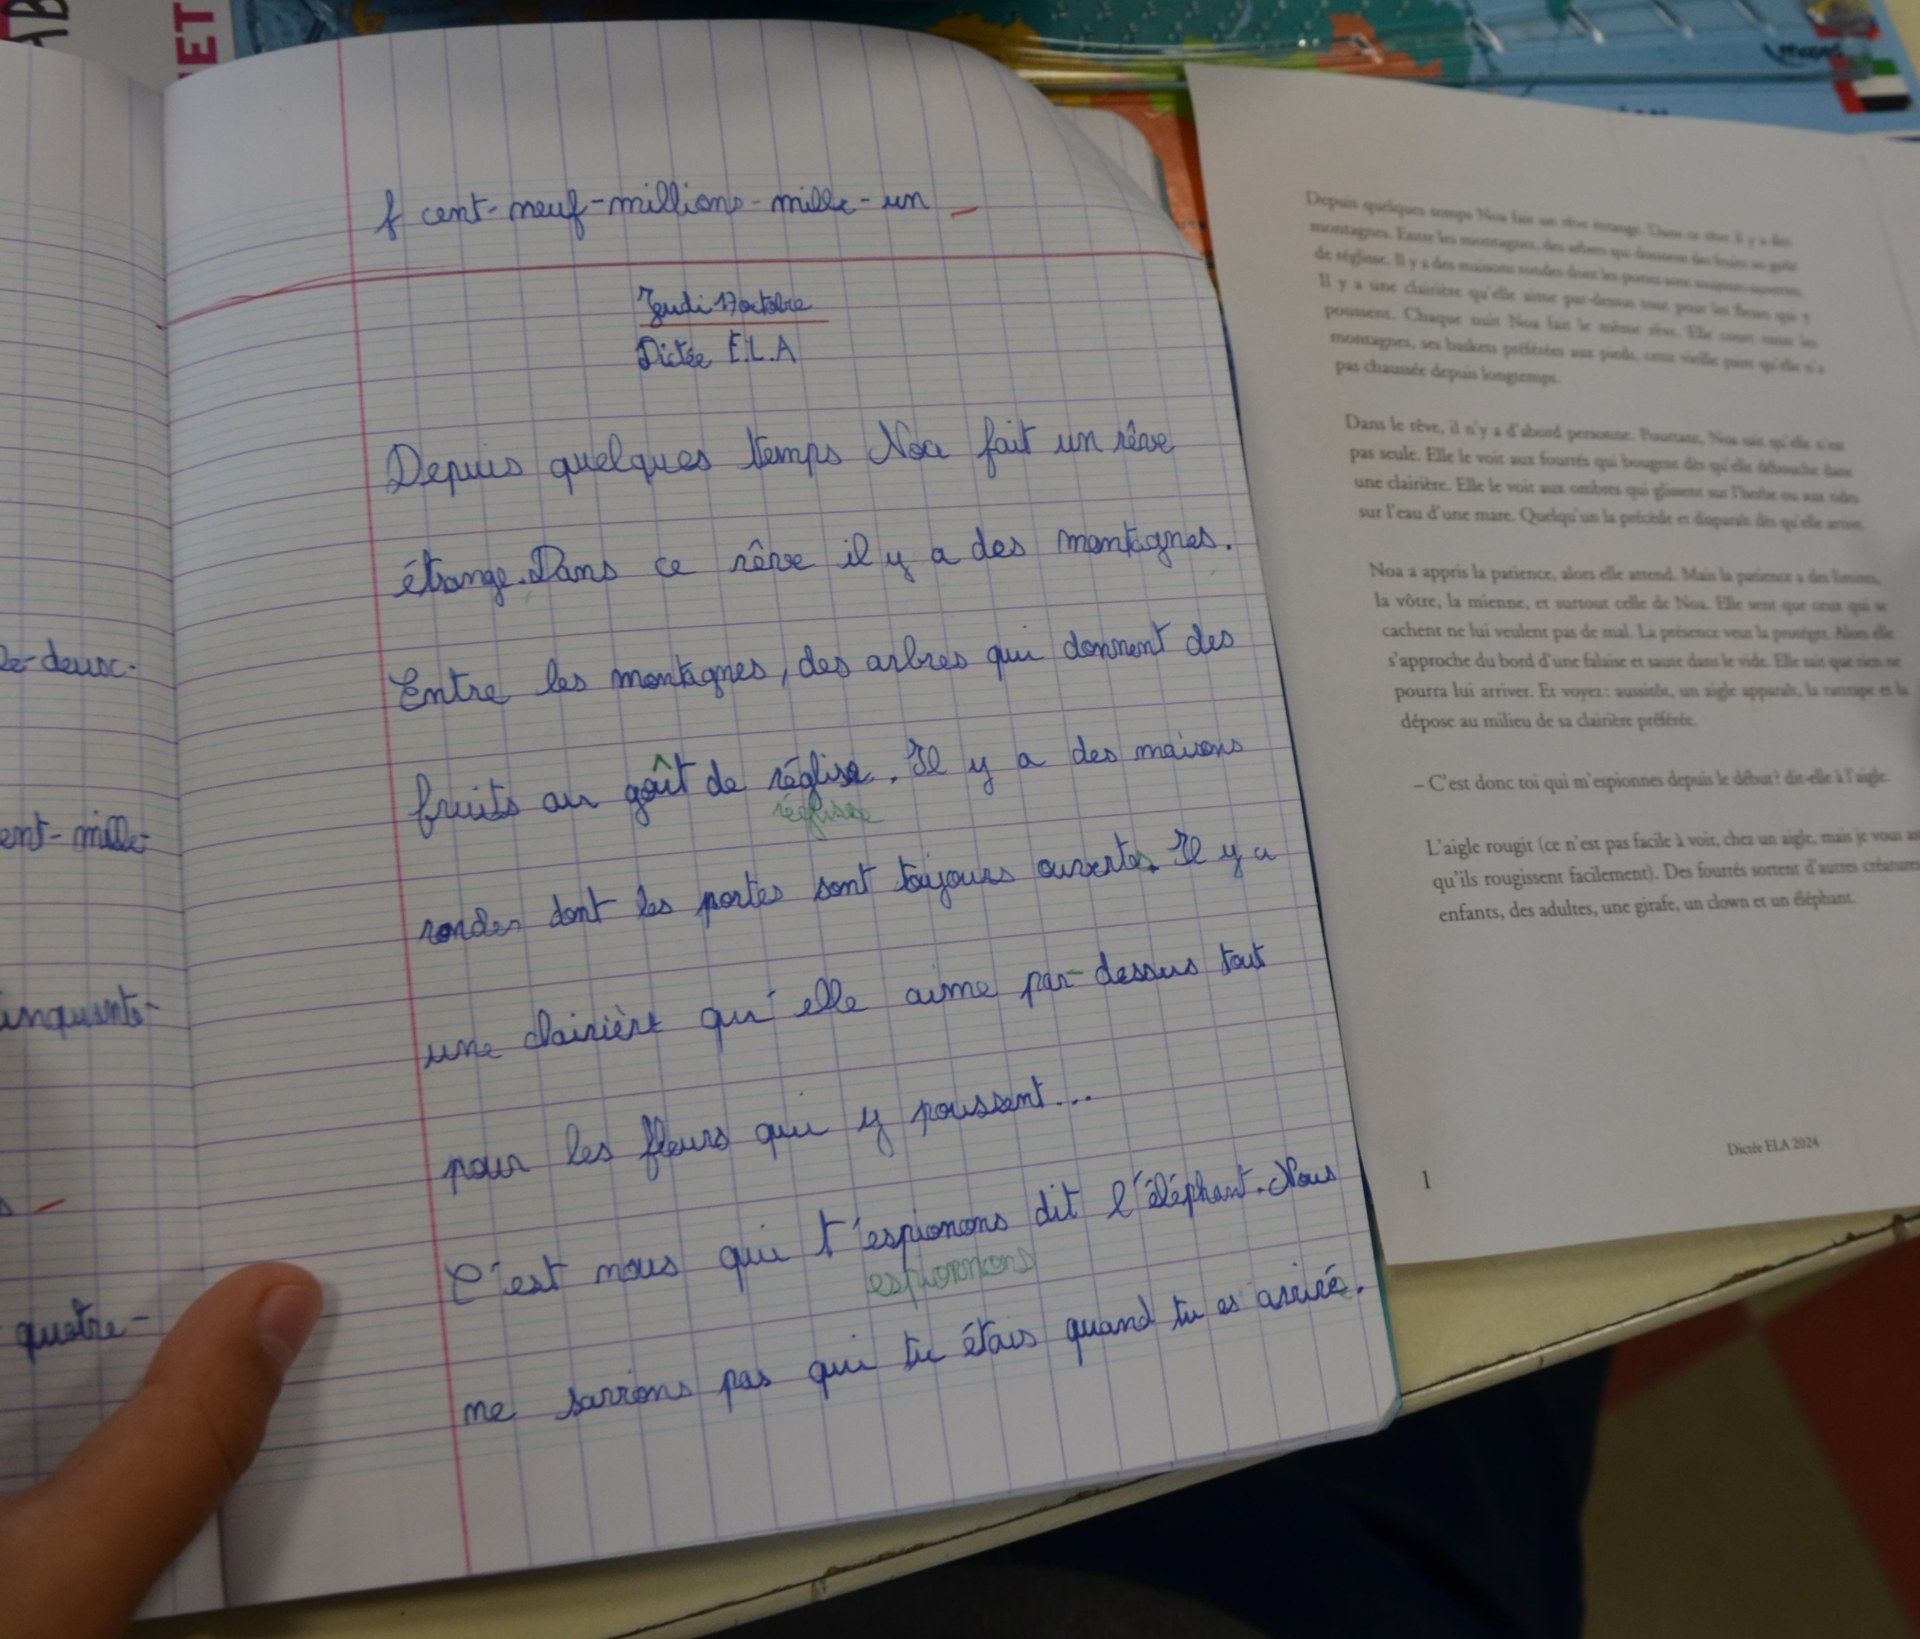 NET
de-deux.
ent-mille-
inquante-
quatre-
f cent-neuf-millions-mille-un
Jeudi 17 octobre
Dictée E.L.A
Depuis quelques temps Noa fait un rêve
étrange. Dans ce rêve il y a des montagnes.
Entre les montagnes, des arbres qui donnent des
fruits au goût de réglise. Il y a des maisons
réglisse
rondes dont les portes sont toujours ouvertes. Il y a
une clairière qu'elle aime par-dessus tout
pour les fleurs qui y poussent...
C'est nous qui t'espionons dit l'éléphant. Nous
espionnons
ne savions pas qui tu étais quand tu es arrivé.
Depuis quelques temps Noa fait un rêve étrange. Dans ce rêve il y a des
montagnes. Entre les montagnes, des arbres qui donnent des fruits au goût
de réglisse. Il y a des maisons rondes dont les portes sont toujours ouvertes.
Il y a une clairière qu'elle aime par-dessus tout pour les fleurs qui y
poussent. Chaque nuit Noa fait le même rêve. Elle court entre les
montagnes, ses baskets préférées aux pieds, cette vieille paire qu'elle n'a
pas chaussée depuis longtemps.
Dans le rêve, il n'y a d'abord personne. Pourtant, Noa sait qu'elle n'est
pas seule. Elle le voit aux fourrés qui bougent dès qu'elle débouche dans
une clairière. Elle le voit aux ombres qui glissent sur l'herbe ou aux rides
sur l'eau d'une mare. Quelqu'un la précède et disparaît dès qu'elle arrive.
Noa a appris la patience, alors elle attend. Mais la patience a des limites,
la vôtre, la mienne, et surtout celle de Noa. Elle sent que ceux qui se
cachent ne lui veulent pas de mal. La présence veut la protéger. Alors elle
s'approche du bord d'une falaise et saute dans le vide. Elle sait que rien ne
pourra lui arriver. Et voyez : aussitôt, un aigle apparaît, la rattrape et la
dépose au milieu de sa clairière préférée.
– C'est donc toi qui m'espionnes depuis le début ? dit-elle à l'aigle.
L'aigle rougit (ce n'est pas facile à voir, chez un aigle, mais je vous
qu'ils rougissent facilement). Des fourrés sortent d'autres créatures
enfants, des adultes, une girafe, un clown et un éléphant.
Dictée ELA 2024
1